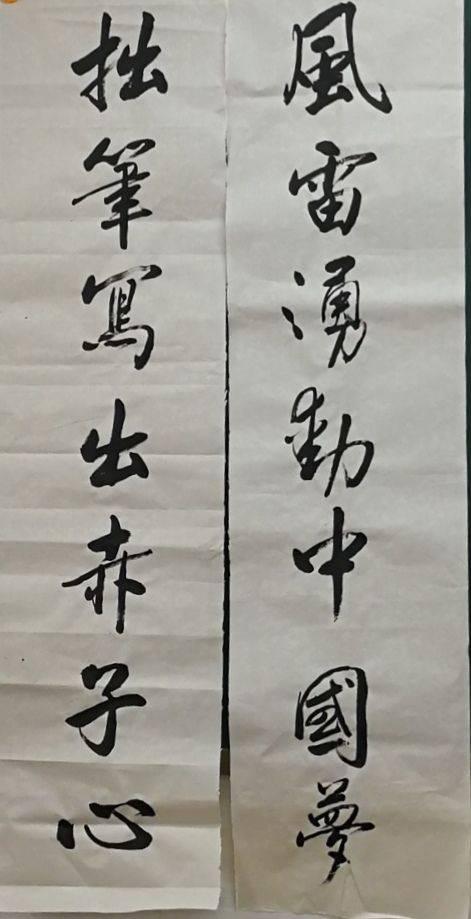 風雷湧動中國夢
拙筆寫出赤子心